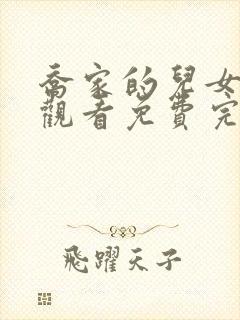 喬家的兒女
觀看免費完
飛躍天子